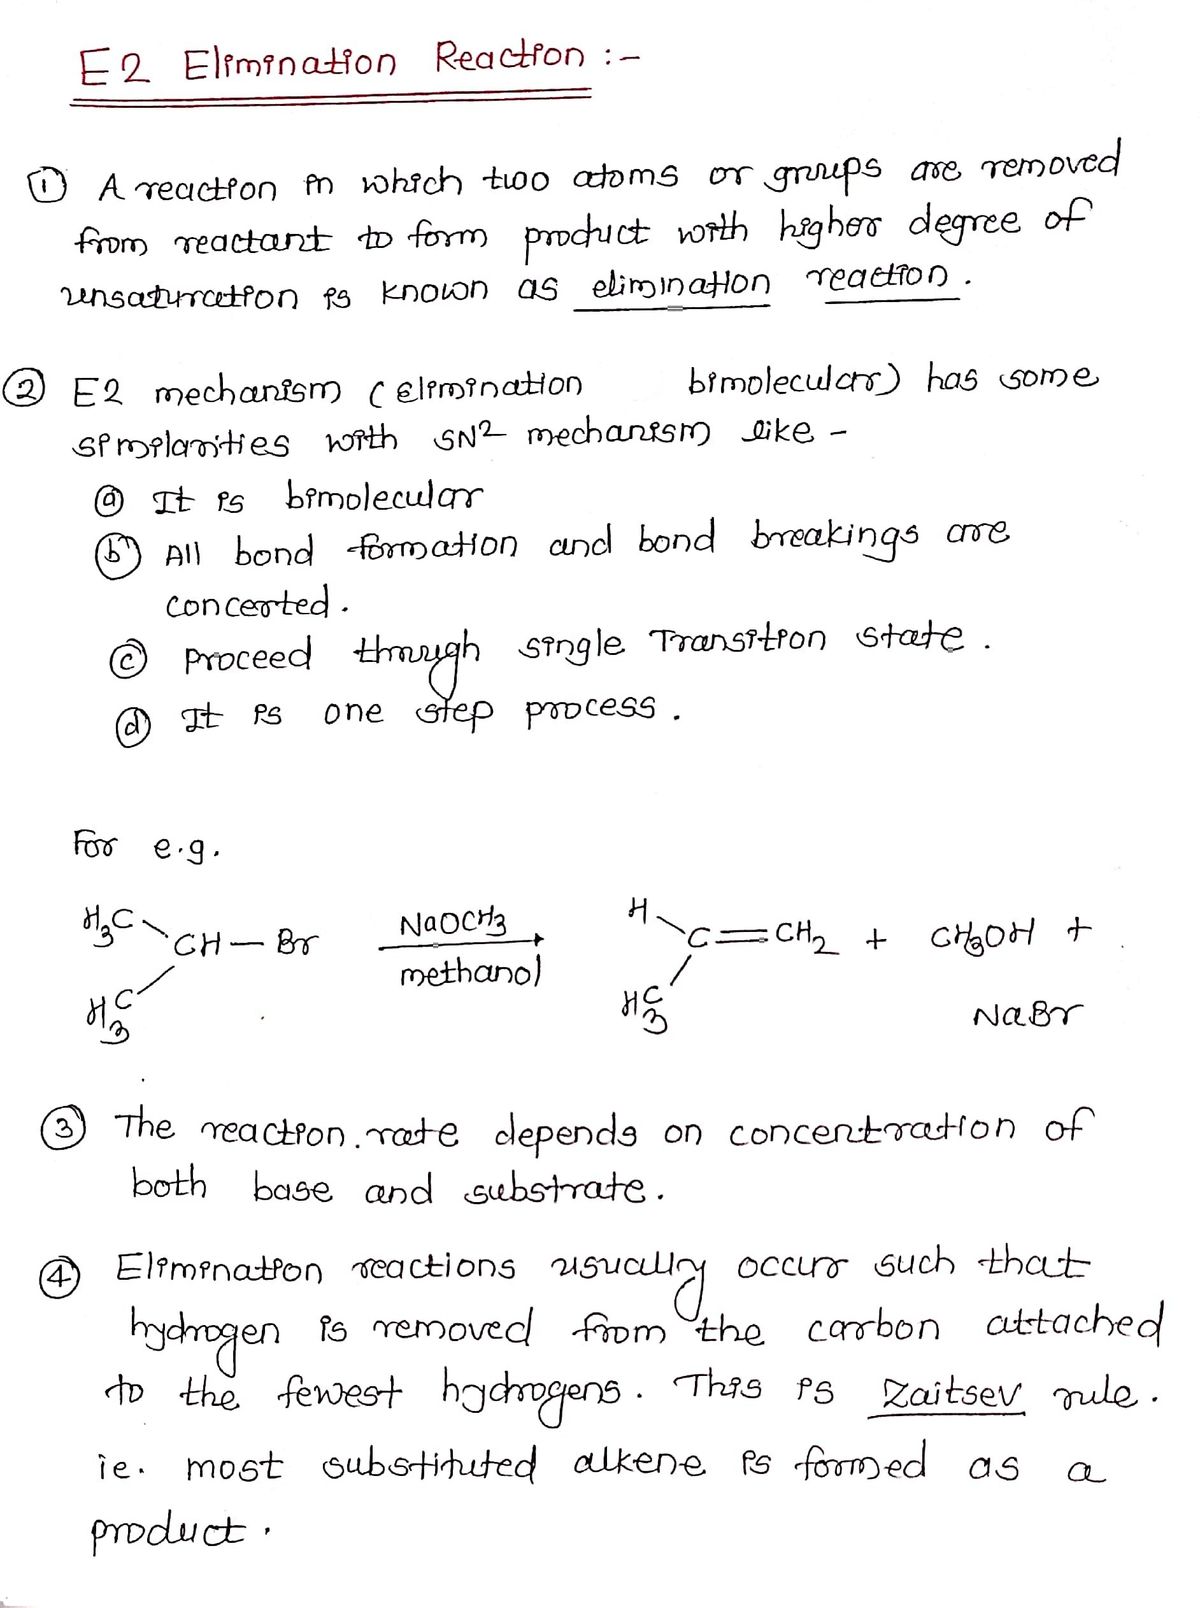 E2 Elimination Reaction :-
① A reaction in which two atoms or groups are removed
from reactant to form product with higher degree of
unsaturation is known as elimination reaction.
② E2 mechanism (elimination bimolecular) has some
similarities with SN2 mechanism like -
ⓐ It is bimolecular
ⓑ All bond formation and bond breakings are
concerted.
ⓒ Proceed through single Transition state.
ⓓ It is one step process.
For e.g.
H3C NaOCH3 H
CH - Br C=CH2 + CH3OH +
H3C methanol H3C NaBr
③ The reaction rate depends on concentration of
both base and substrate.
④ Elimination reactions usually occur such that
hydrogen is removed from the carbon attached
to the fewest hydrogens. This is Zaitsev rule.
ie. most substituted alkene is formed as a
product.